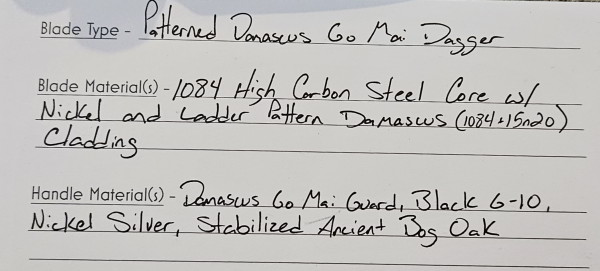 Blade Type - Patterned Damascus Go Mai Dagger
Blade Material(s) - 1084 High Carbon Steel Core w/
Nickel and Ladder Pattern Damascus (1084+15n20)
Cladding
Handle Material(s) - Damascus Go Mai Guard, Black G-10,
Nickel Silver, Stabilized Ancient Bog Oak